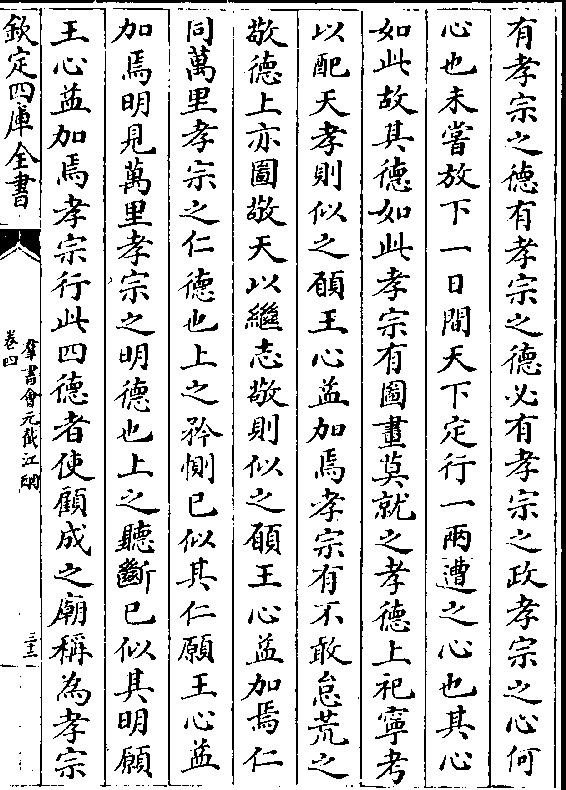 有孝宗之德有孝宗之德必有孝宗之政孝宗之心何
心也未嘗放下一日間天下定行一兩遭之心也其心
如此故其德如此孝宗有圖畫莫就之孝德上祀寧考
以配天孝則似之願王心益加焉孝宗有不敢怠荒之
敬德上亦圖敬天以繼志敬則似之願王心益加焉仁
同萬里孝宗之仁德也上之矜惻已似其仁願王心益
加焉明見萬里孝宗之明德也上之聽斷已似其明願
王心益加焉孝宗行此四德者使顧成之廟稱為孝宗
欽定四庫全書
羣書會元截江網
卷四
三十二